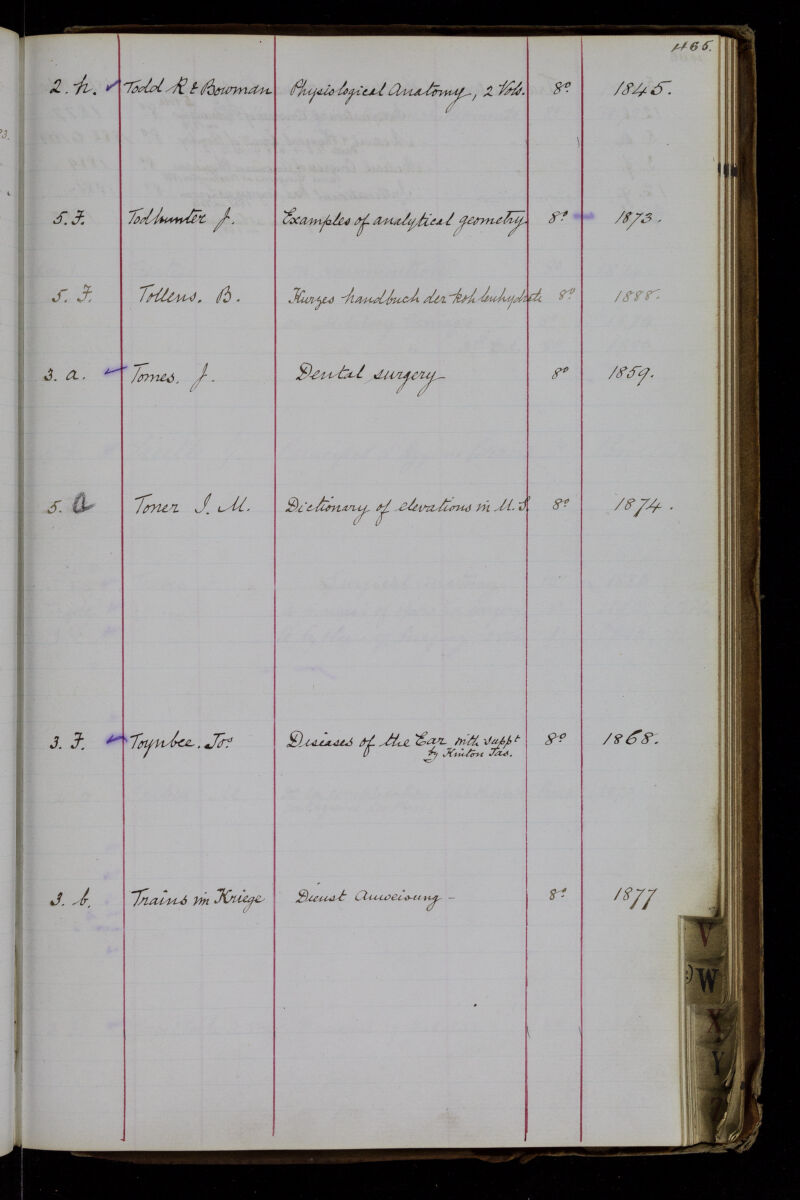 465.
2. h. ✓ Todd R & Bowman Physiological Anatomy, 2 Vols. 8º 1845.
5. F. Todhunter J. Examples of analytical geometry 8º 1873.
5. F. Tollens. B. Kurzes handbuch der kohlenhydrate 8º 1888.
3. a. ✓ Tomes. J. Dental surgery 8º 1859.
5. a Toner J. M. Dictionary of elevations in U.S. 8º 1874.
3. F. ✓ Toynbee. Jos Diseases of the Ear with suppt 8º 1868.
by Hinton Jas.
3. b. Trains im Kriege Dienst Anweisung – 8º 1877
V
W
X
Y